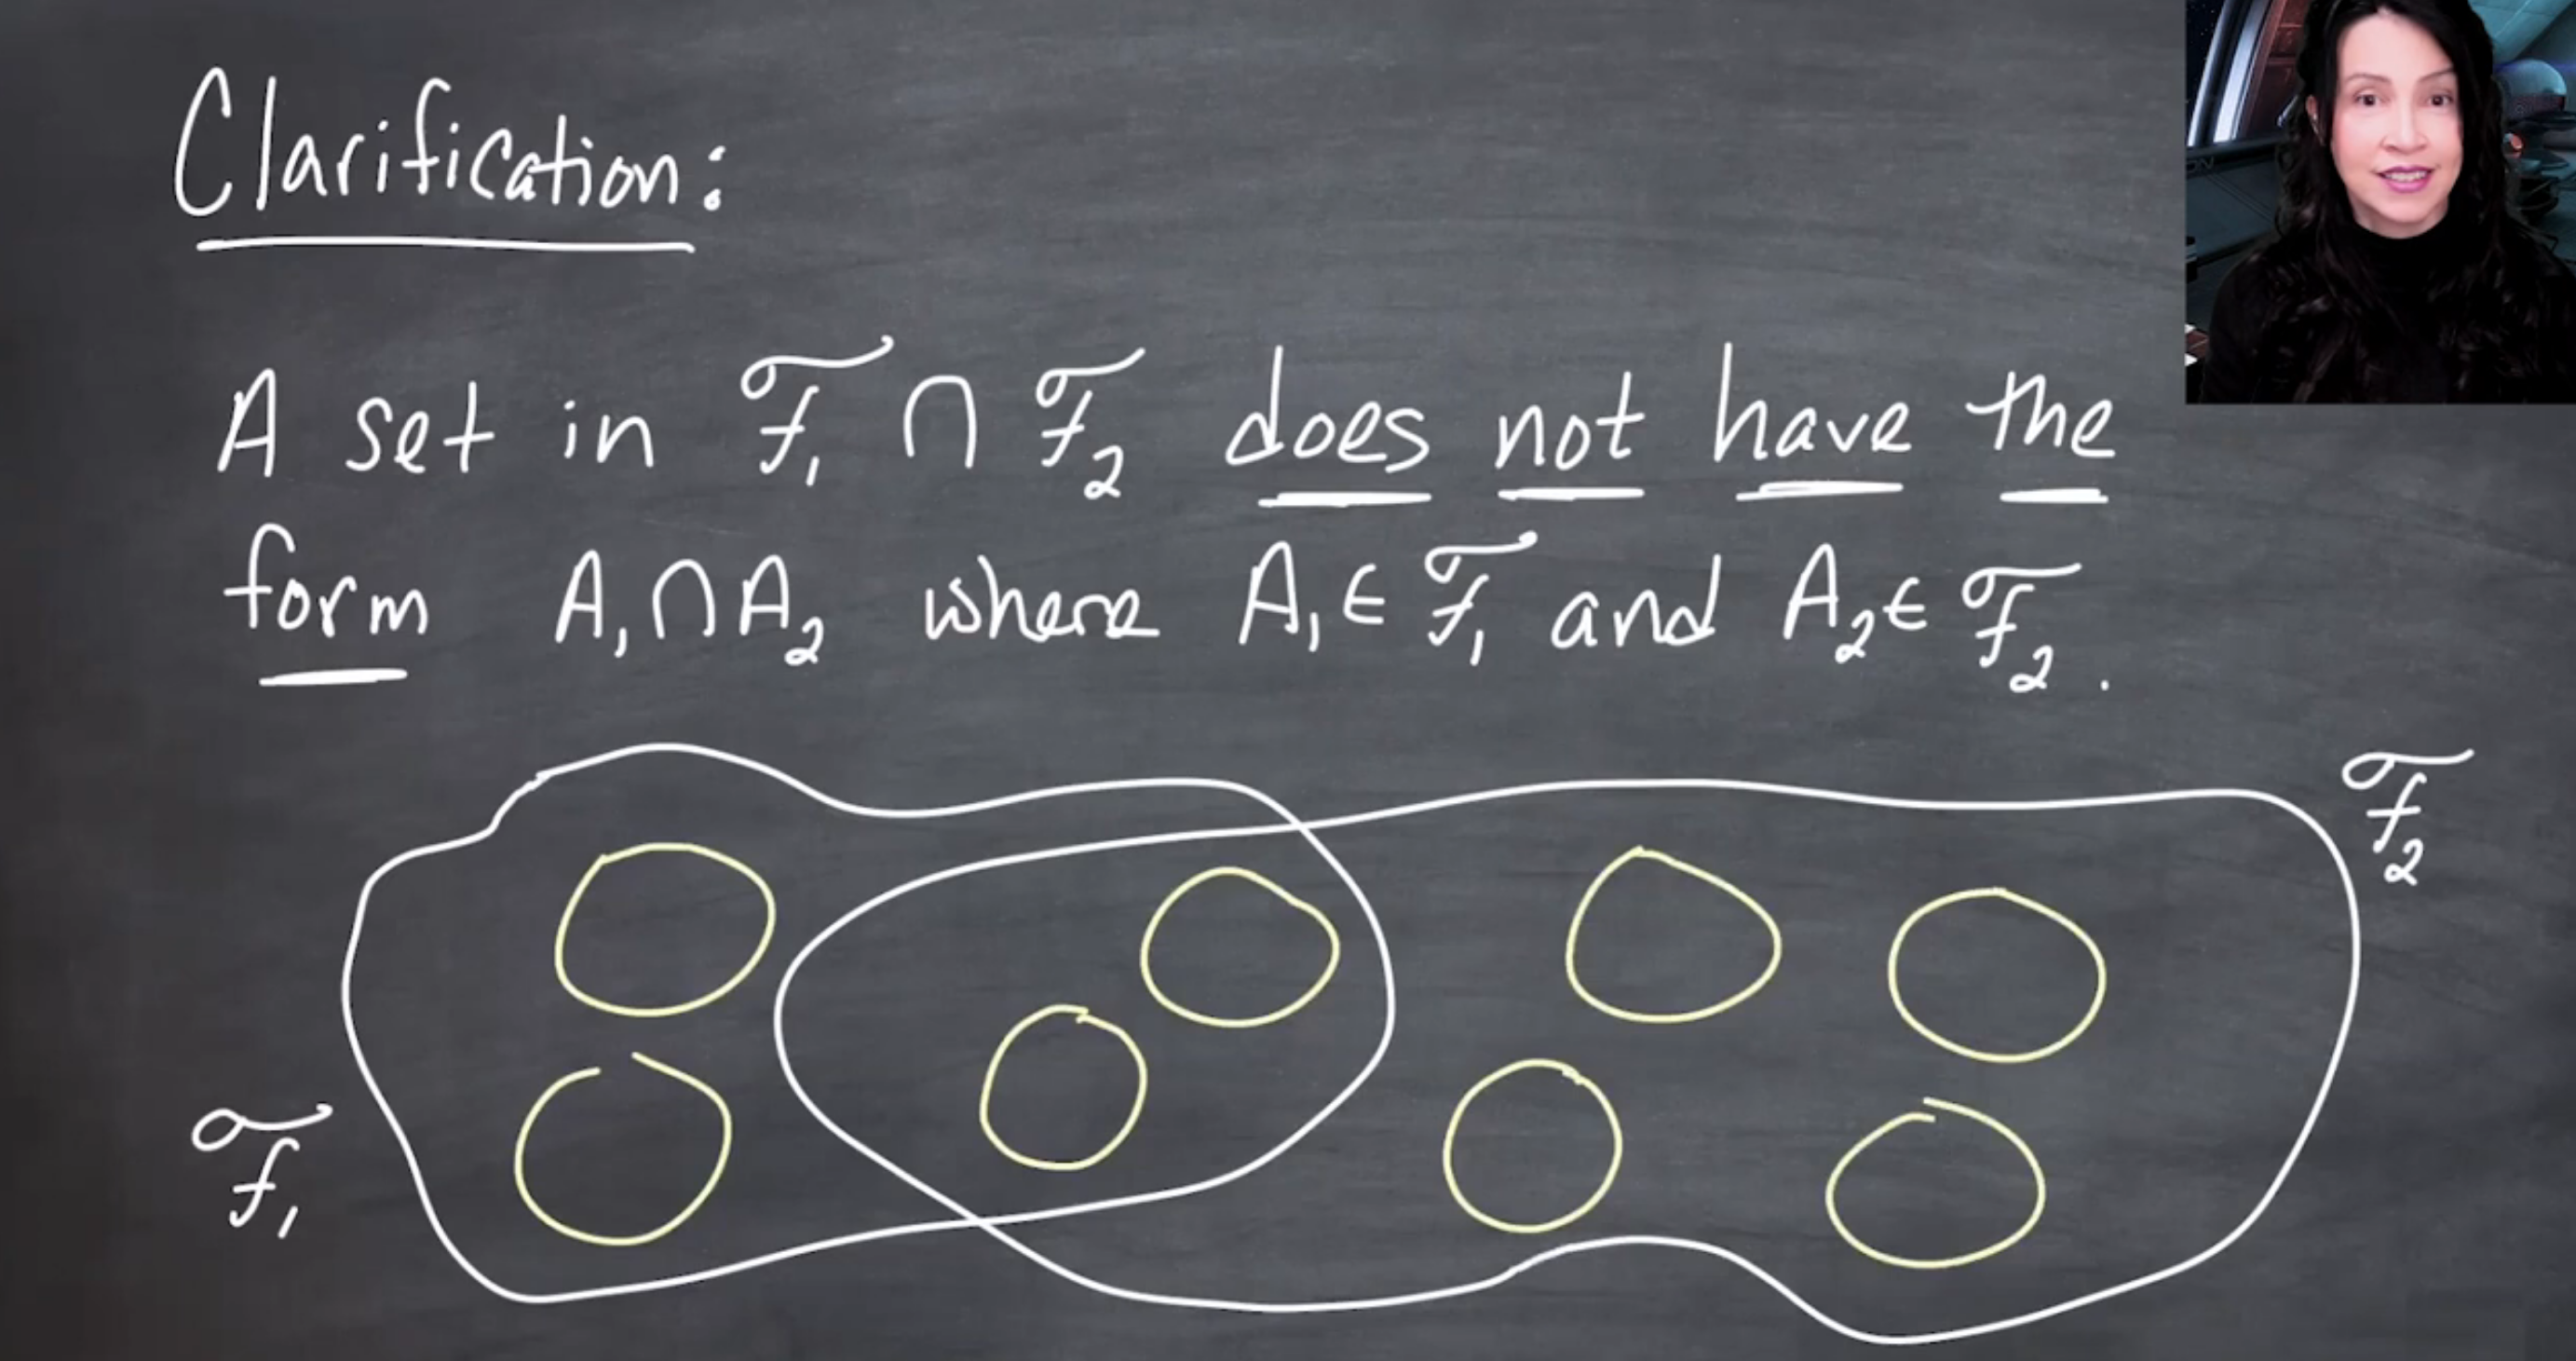 Clarification:
A set in ℱ₁ ∩ ℱ₂ does not have the
form A₁∩A₂ where A₁∈ ℱ₁ and A₂∈ ℱ₂.
ℱ₂
ℱ₁